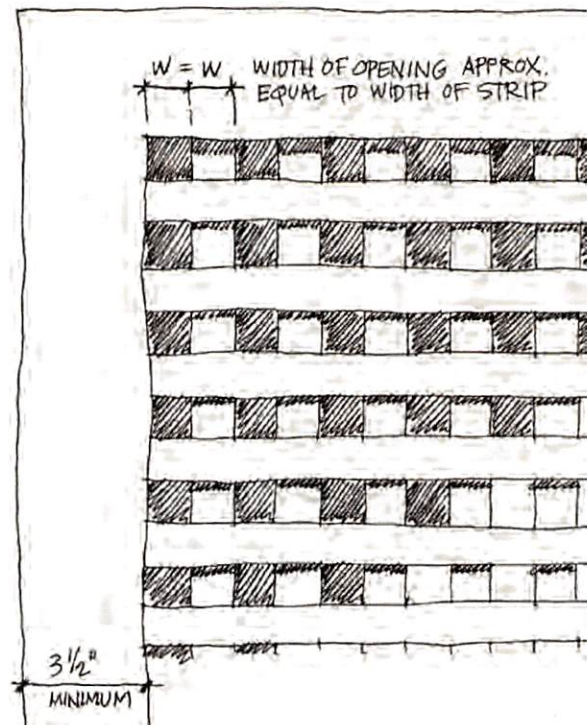 W = W WIDTH OF OPENING APPROX.
EQUAL TO WIDTH OF STRIP
3 1/2"
MINIMUM